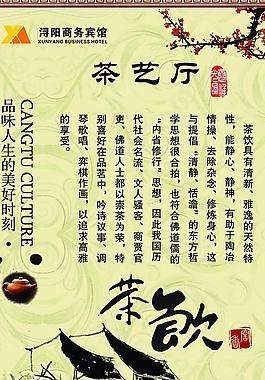 浔阳商务宾馆
XUNYANG BUSINESS HOTEL
茶艺厅
茶饮具有清新、雅逸的天然特
性，能静心、静神，有助于陶冶
情操、去除杂念、修炼身心，这
与提倡“清静、恬澹”的东方哲
学思想很合拍，也符合佛道儒的
“内省修行”思想，因此我国历
代社会名流、文人骚客、商贾官
吏、佛道人士都以崇茶为荣，特
别喜好在品茗中，吟诗议事、调
琴歌唱、弈棋作画，以追求高雅
的享受。
CANGTU CULTURE
品味人生的美好时刻
茶饮